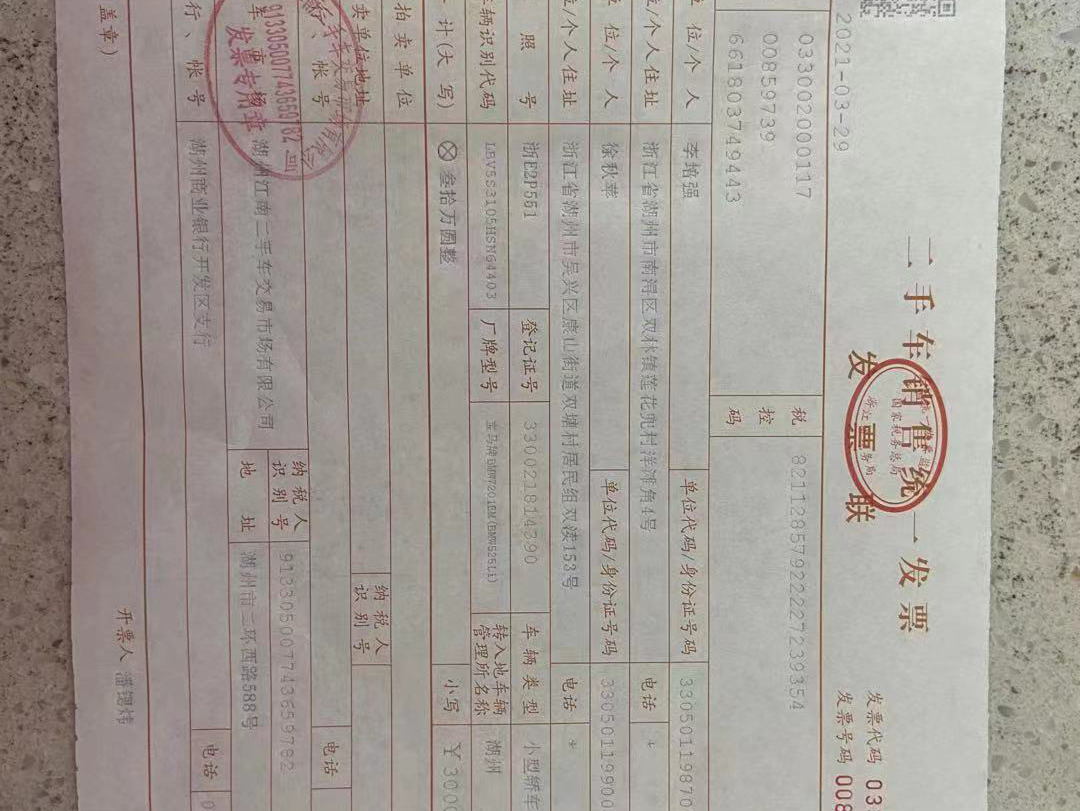 二手车销售统一发票
发票联
国家税务总局
2021-03-29
发票代码 03
发票号码 008
033002000117
00859739
661803749443
税控码
821128579222272239354
位/个人 李培强 单位代码/身份证号码 3305011987O
位/个人住址 浙江省湖州市南浔区双林镇莲花兜村洋滩角4号 电话 *
位/个人 徐秋苹 单位代码/身份证号码 33050119900
位/个人住址 浙江省湖州市吴兴区康山街道双塘村居民组双渎153号 电话 *
照号 浙E2P551 登记证号 330021814390 车辆类型 小型轿车
车辆识别代码 LBV5S3105HSN64403 厂牌型号 宝马牌BMW7201EM(BMW525Li) 转入地车辆管理所名称 湖州
计(大写) ⊗叁拾万圆整 小写 ¥300
拍卖单位
卖单位地址 纳税人识别号
行、帐号 电话
湖州江南二手车交易市场有限公司 纳税人识别号 913305007743659782
地址 湖州市二环西路588号
行、帐号 湖州商业银行开发区支行 电话 0
盖章)
开票人 潘锶炜
发票专用章